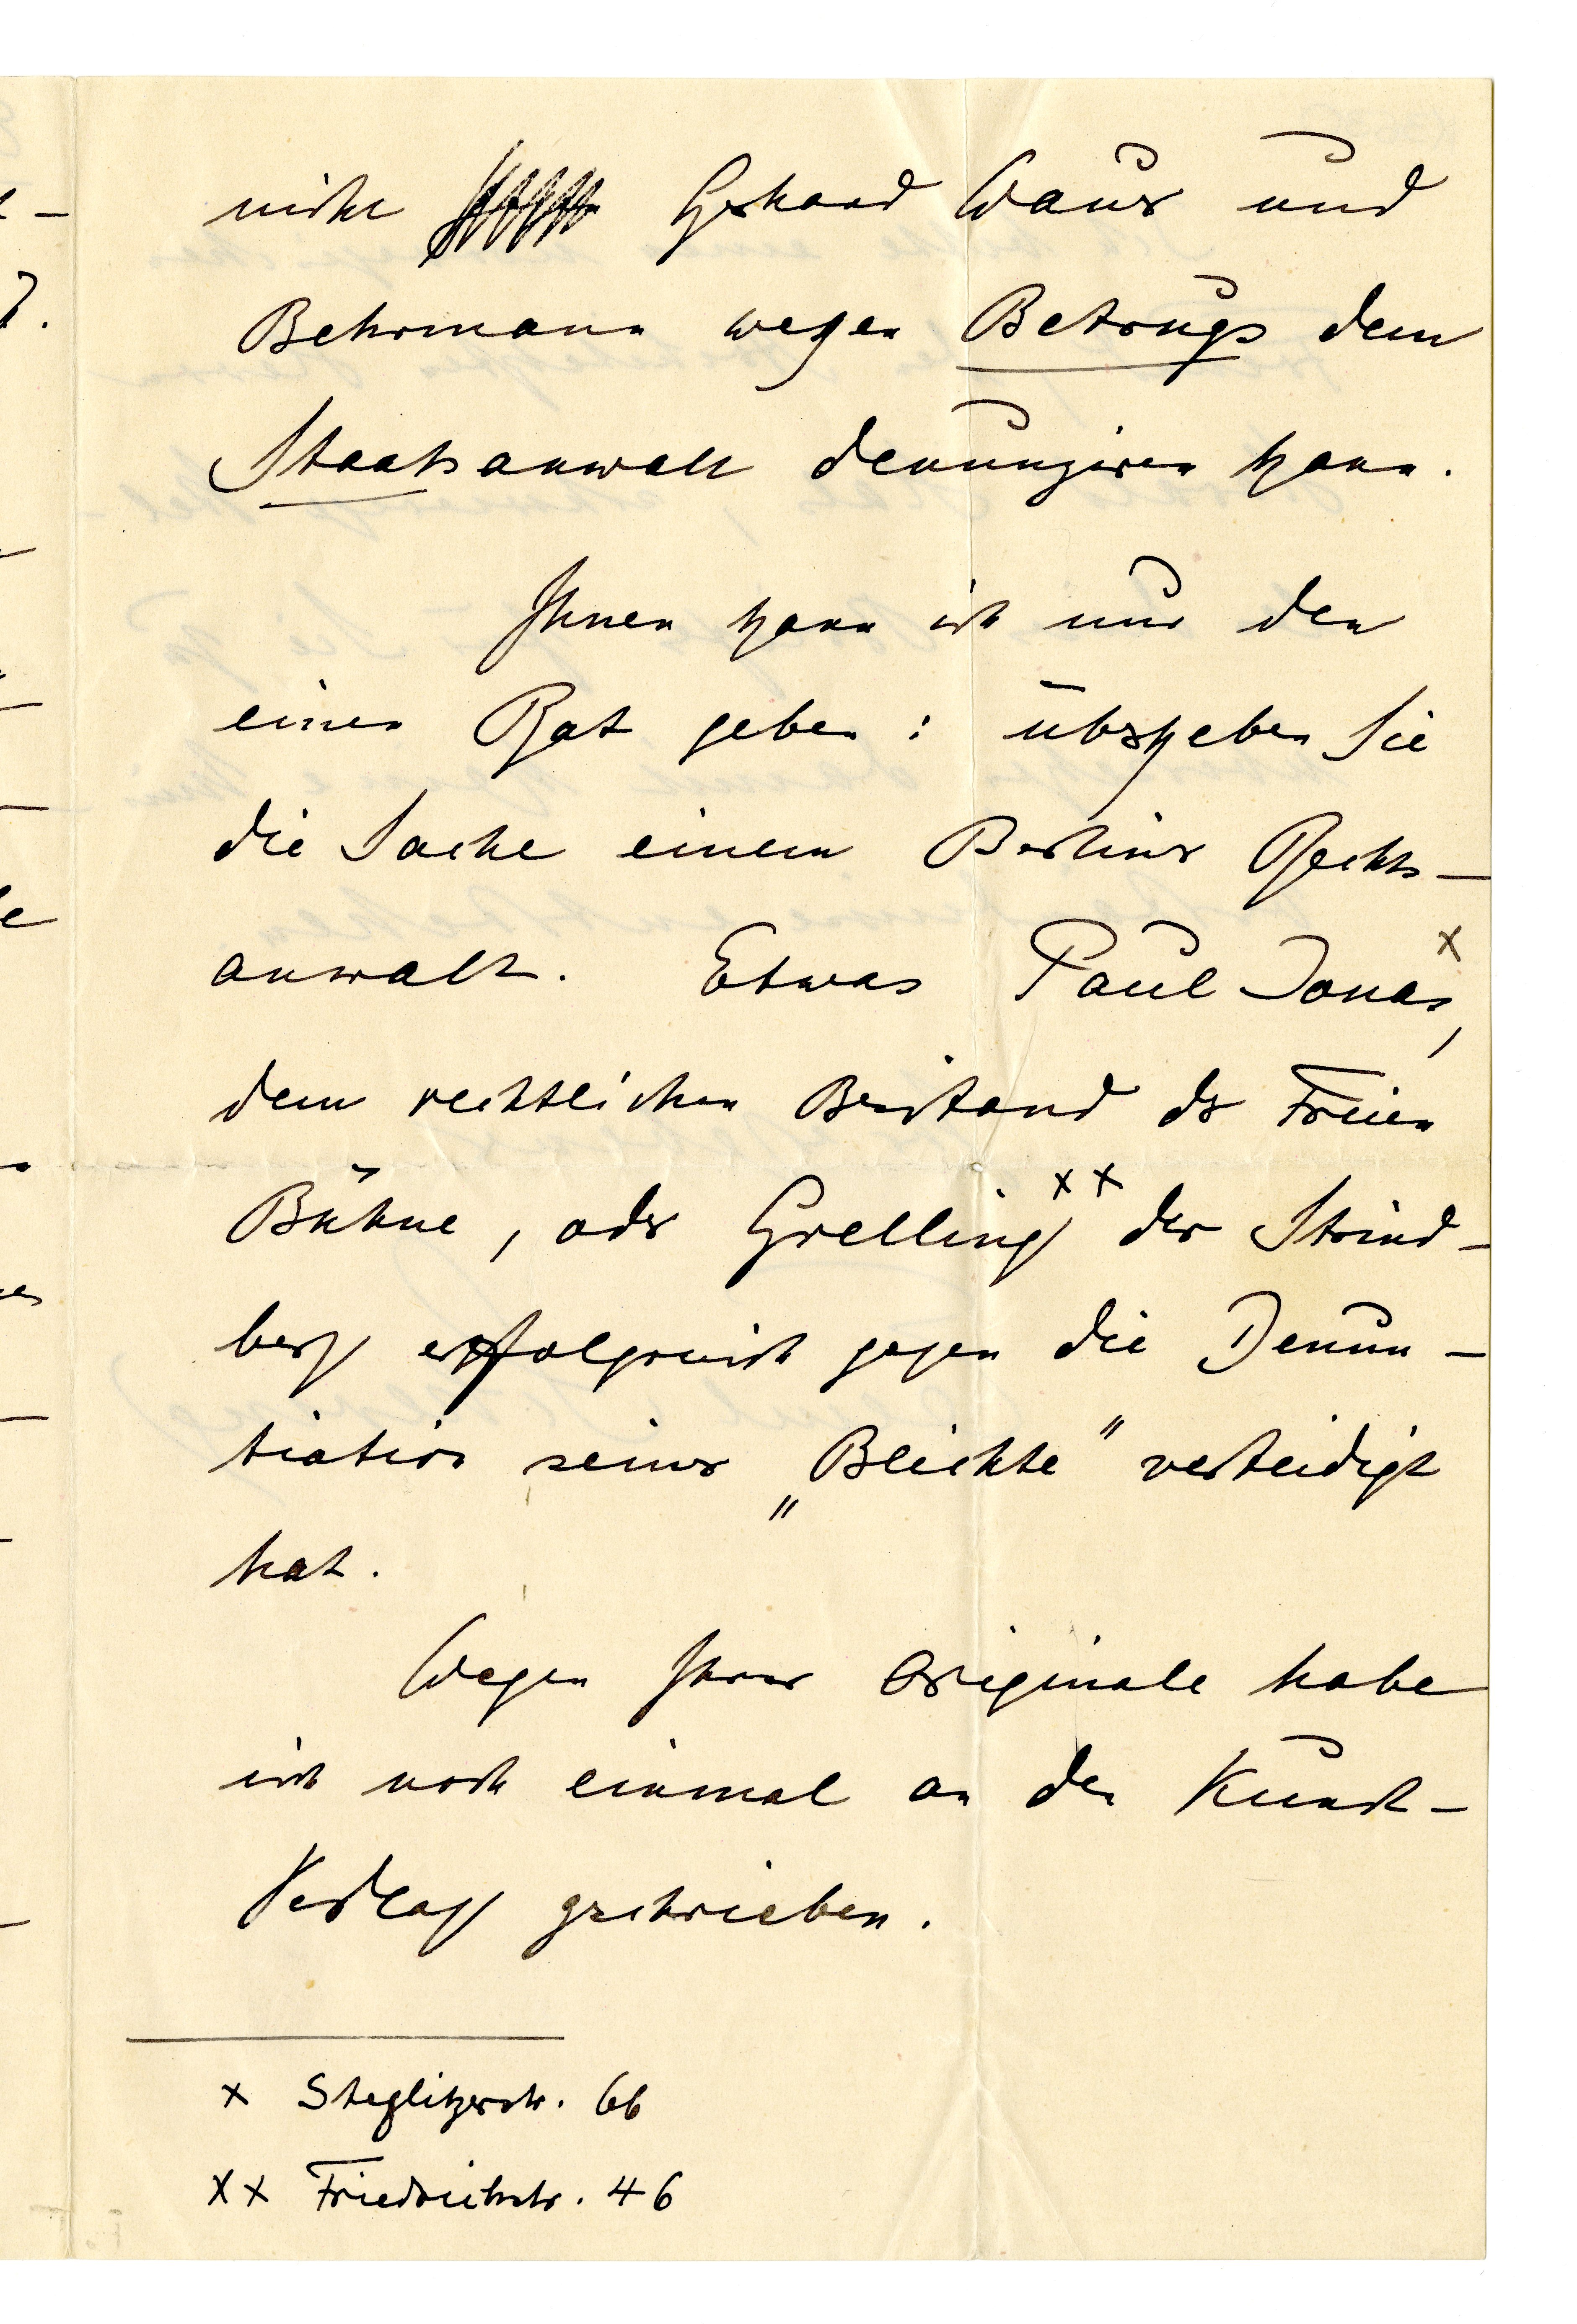 nicht Gerhard Wauer und
Behrmann wegen Betrugs dem
Staatsanwalt denunziren kann.
Ihnen kann ich nur den
einen Rat geben: übergeben Sie
die Sache einem Berliner Rechts-
anwalt. Etwas Paul Jonas x,
dem rechtlichen Beistand der Freien
Bühne, oder Grelling xx der Strind-
berg erfolgreich gegen die Denun-
tiation seiner „Beichte" verteidigt
hat.
Wegen Ihrer Originale habe
ich noch einmal an den Kunst-
Verlag geschrieben.
x Steglitzerstr. 66
xx Friedrichstr. 46